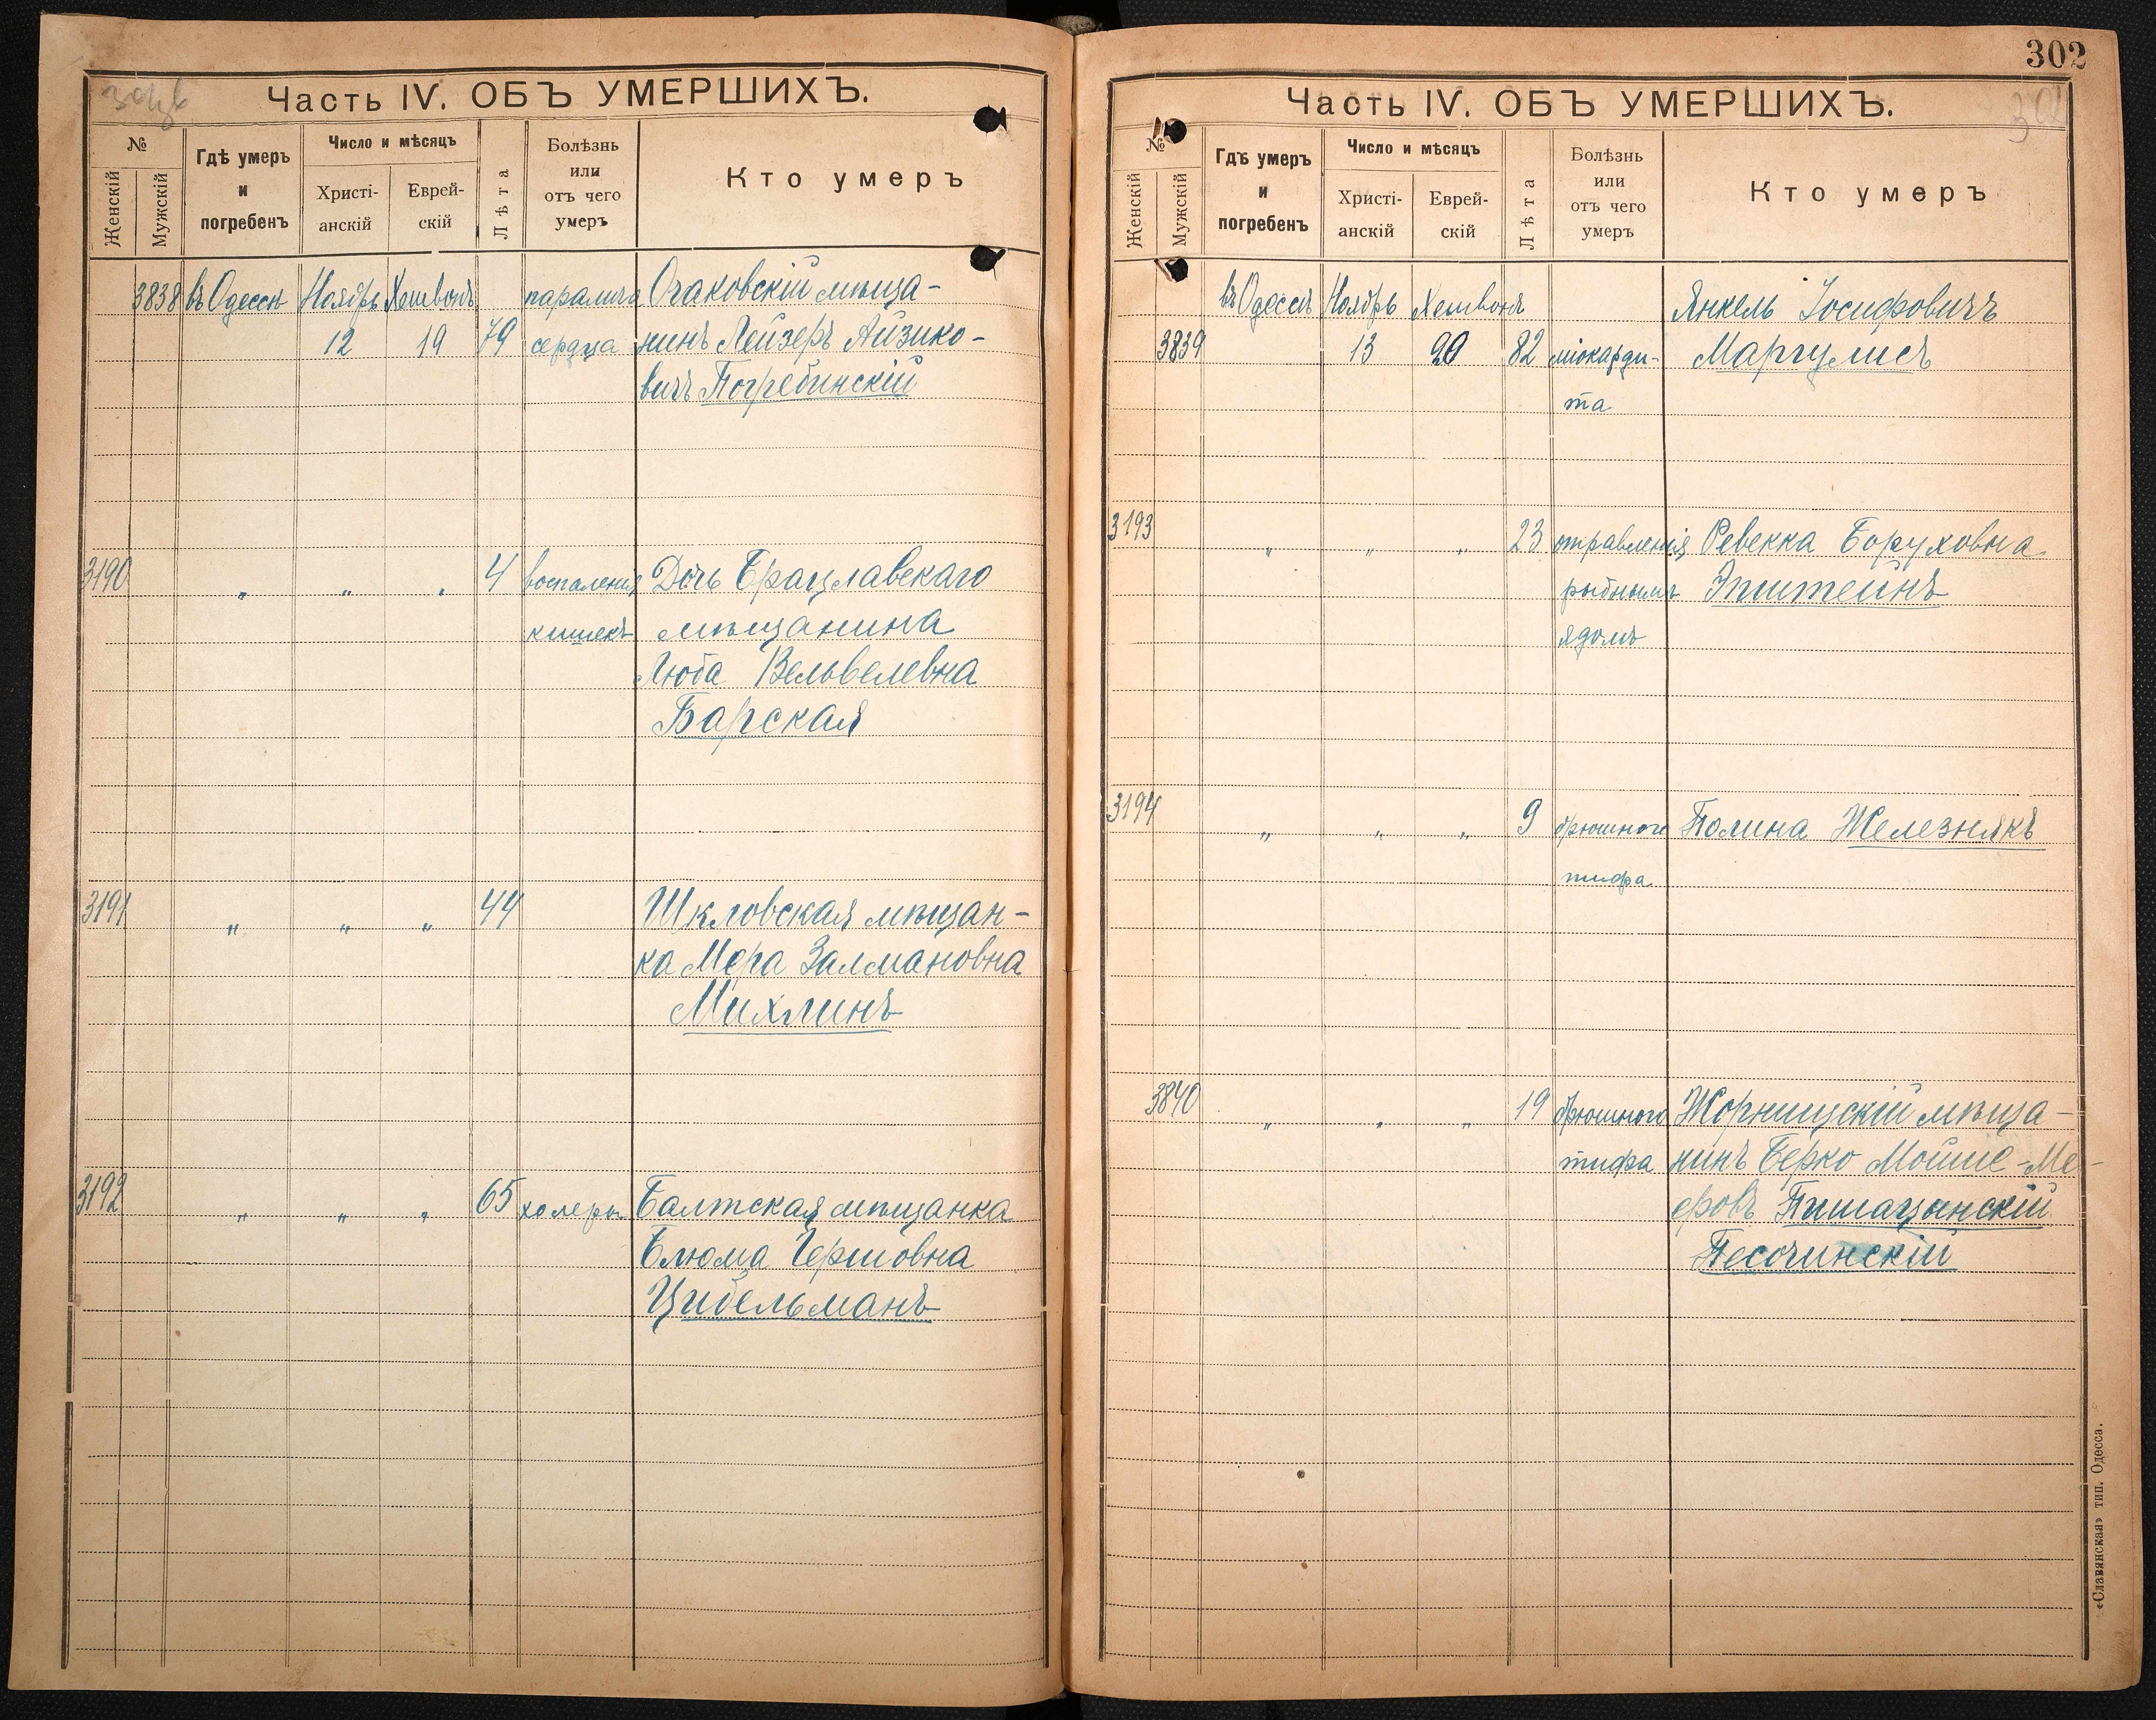 Часть IV. ОБЪ УМЕРШИХЪ.
№
Женскій
Мужскій
Гдѣ умеръ
и
погребенъ
Число и мѣсяцъ
Христі-
анскій
Еврей-
скій
Лѣта
Болѣзнь
или
отъ чего
умеръ
Кто умеръ
3838 въ Одессѣ Ноябрь Хешвонъ паралича Очаковскій мѣща-
12 19 79 сердца нинъ Лейзеръ Айзико-
вичъ Погребинскій
3190 „ „ „ 4 воспаленія Дочь Брацлавскаго
кишекъ мѣщанина
Люба Вельвелевна
Барская
3191 „ „ „ 44 Шкловская мѣщан-
ка Мера Залмановна
Михлинъ
3192 „ „ „ 65 холеры Балтская мѣщанка
Блюма Гершовна
Цибельманъ
302
Часть IV. ОБЪ УМЕРШИХЪ.
№
Женскій
Мужскій
Гдѣ умеръ
и
погребенъ
Число и мѣсяцъ
Христі-
анскій
Еврей-
скій
Лѣта
Болѣзнь
или
отъ чего
умеръ
Кто умеръ
въ Одессѣ Ноябрь Хешвонъ Янкель Іосифовичъ
3839 13 20 82 міокарди- Маргулисъ
та
3193 „ „ „ 23 отравленія Ревекка Боруховна
рыбнымъ Эпштейнъ
ядомъ
3194 „ „ „ 9 брюшного Полина Железнякъ
тифа
3840 „ „ „ 19 брюшного Жорнищскій мѣща-
тифа нинъ Берко Мошие-Ме-
еровъ Пишацынскій
Песочинскій
«Славянская» тип. Одесса.